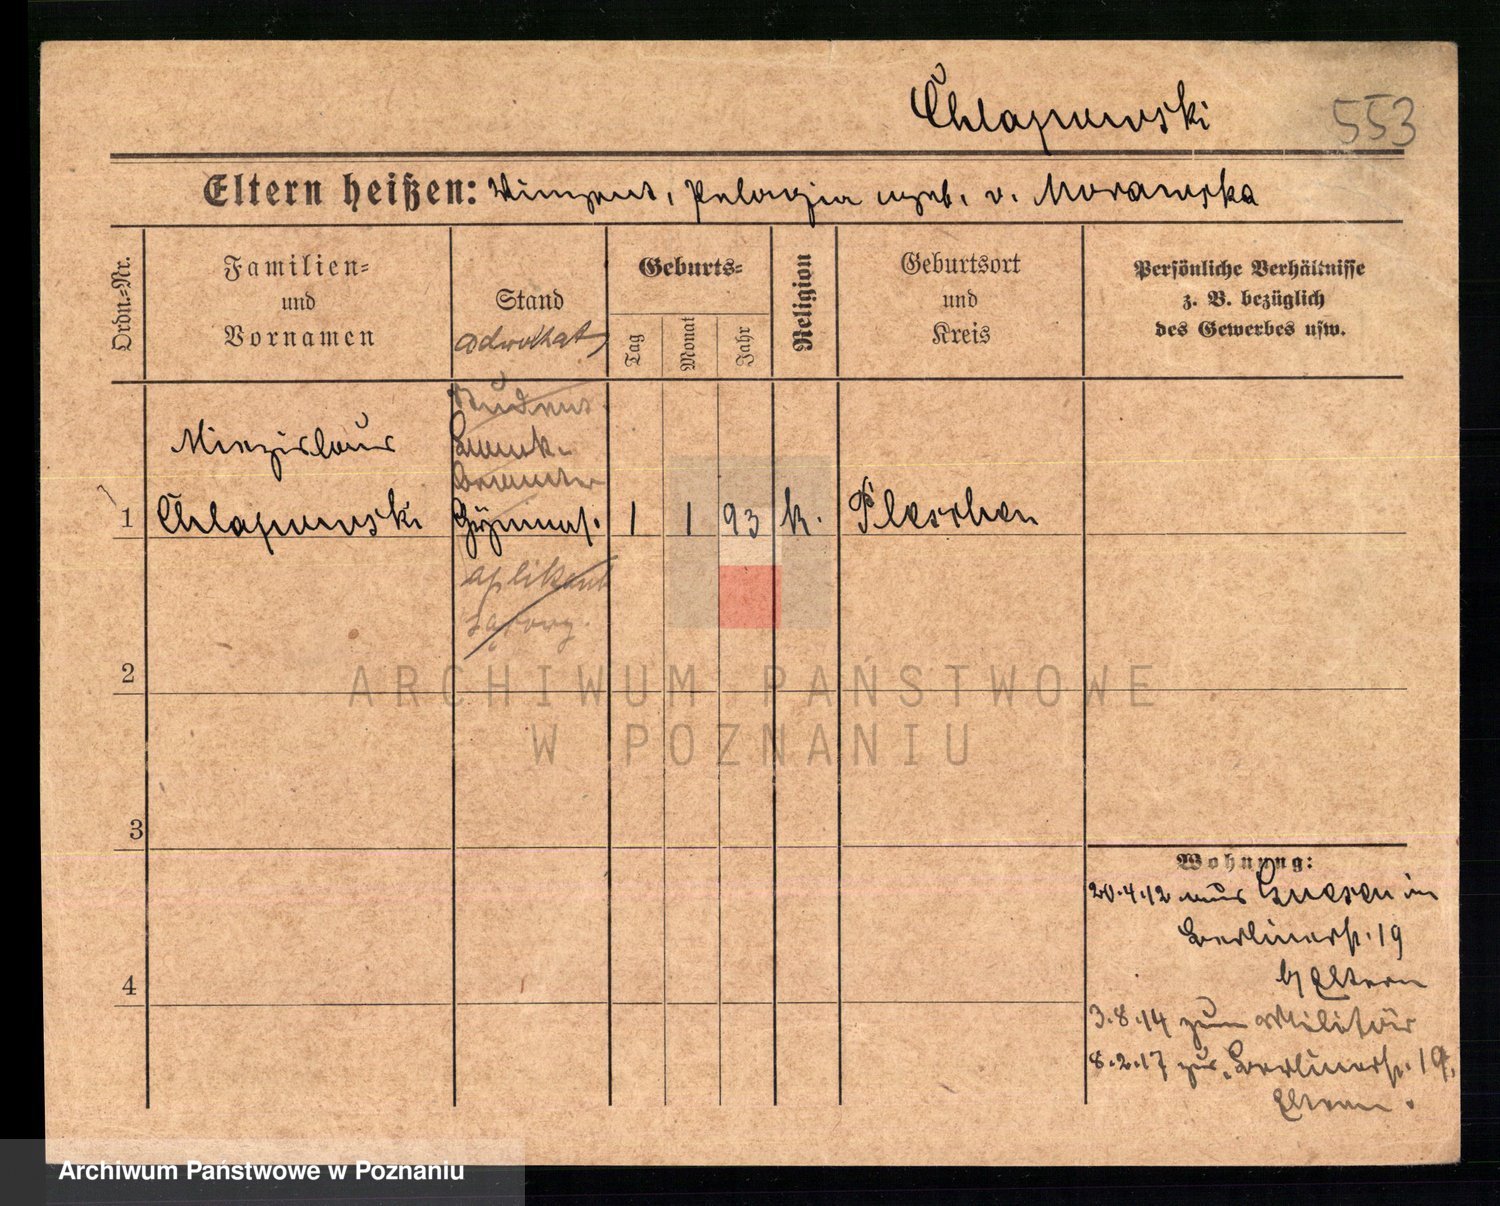 Chlapowski
553
Eltern heißen: Vinzent, Pelagia geb. v. Morawska
Ordn.-Nr.
Familien-
und
Vornamen
Stand
adwokat
Geburts-
Tag
Monat
Jahr
Religion
Geburtsort
und
Kreis
Persönliche Verhältnisse
z. B. bezüglich
des Gewerbes usw.
Student
Miezislaus
Bank-
Beamter
1 Chlapowski Gymnas. 1 1 93 k. Pleschen
aplikant
2
ARCHIWUM PAŃSTWOWE
W POZNANIU
3
Wohnung:
20.4.12 aus Gnesen in
Berlinerstr. 19
b/ Eltern
4
3.8.14 zum Militär
8.2.17 zur. Berlinerstr. 19,
Eltern.
Archiwum Państwowe w Poznaniu